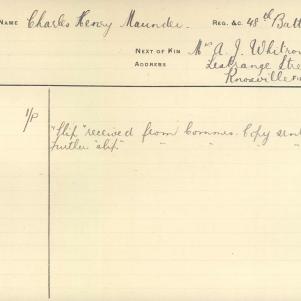 NAME Charles Henry Maunder. REG. &C. 48th Batt
NEXT OF KIN Mrs A. J. Whitro
ADDRESS LesTrange Stre
Knosville
1/P "Slip" received from Commes. Copy sent
Further "slip" " " " "